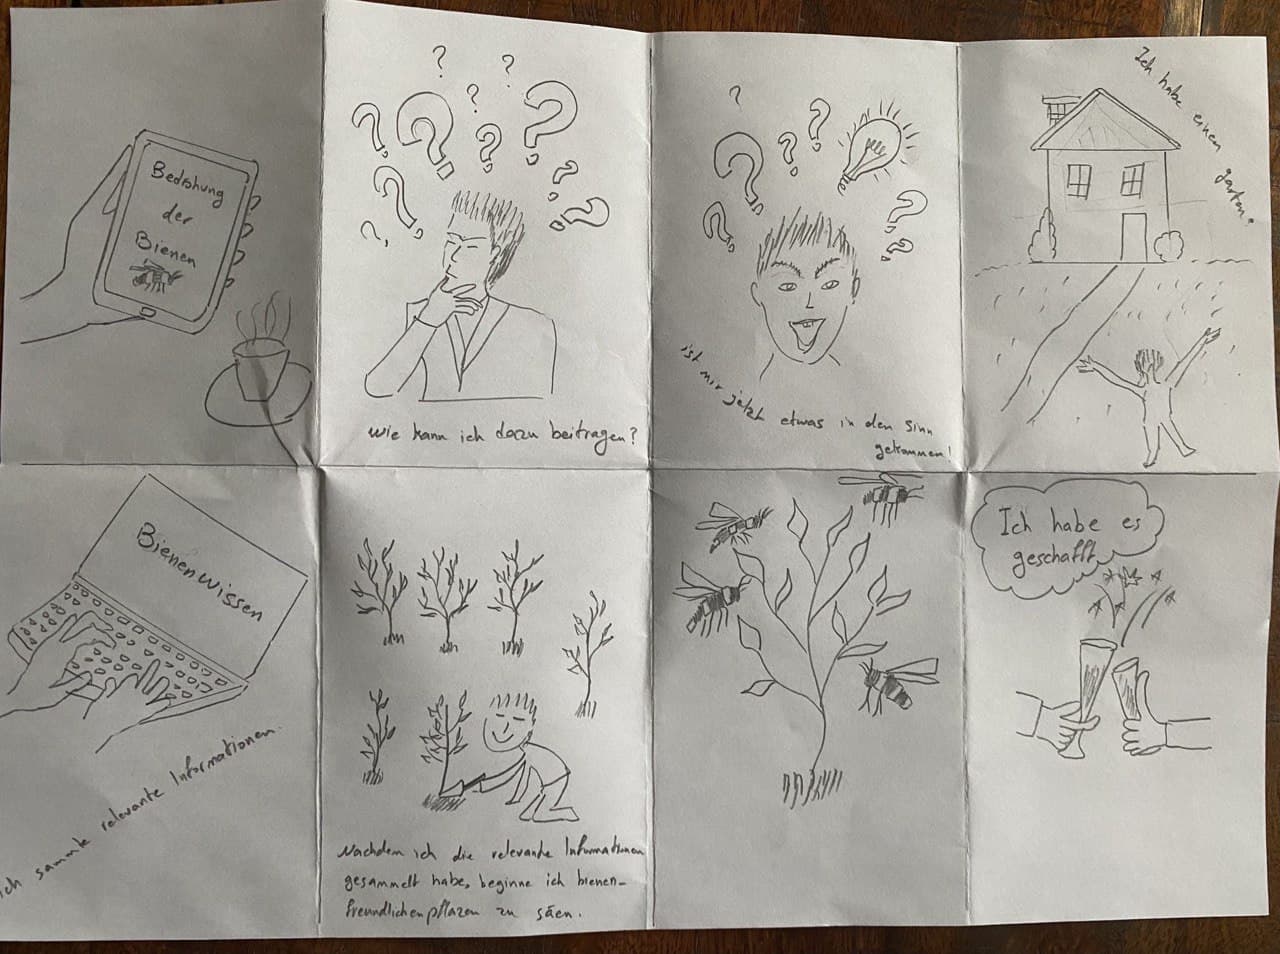 Bedrohung
der
Bienen
? ? ? ? ? ? ? ? ? ? ?
wie kann ich dazu beitragen?
? ? ? ? ? ? ?
ist mir jetzt etwas in den Sinn
gekommen!
Ich habe einen garten.
Bienenwissen
ich sammle relevante Informationen.
Nachdem ich die relevante Informationen
gesammelt habe, beginne ich bienen-
freundlichen pflazen zu säen.
Ich habe es
geschafft